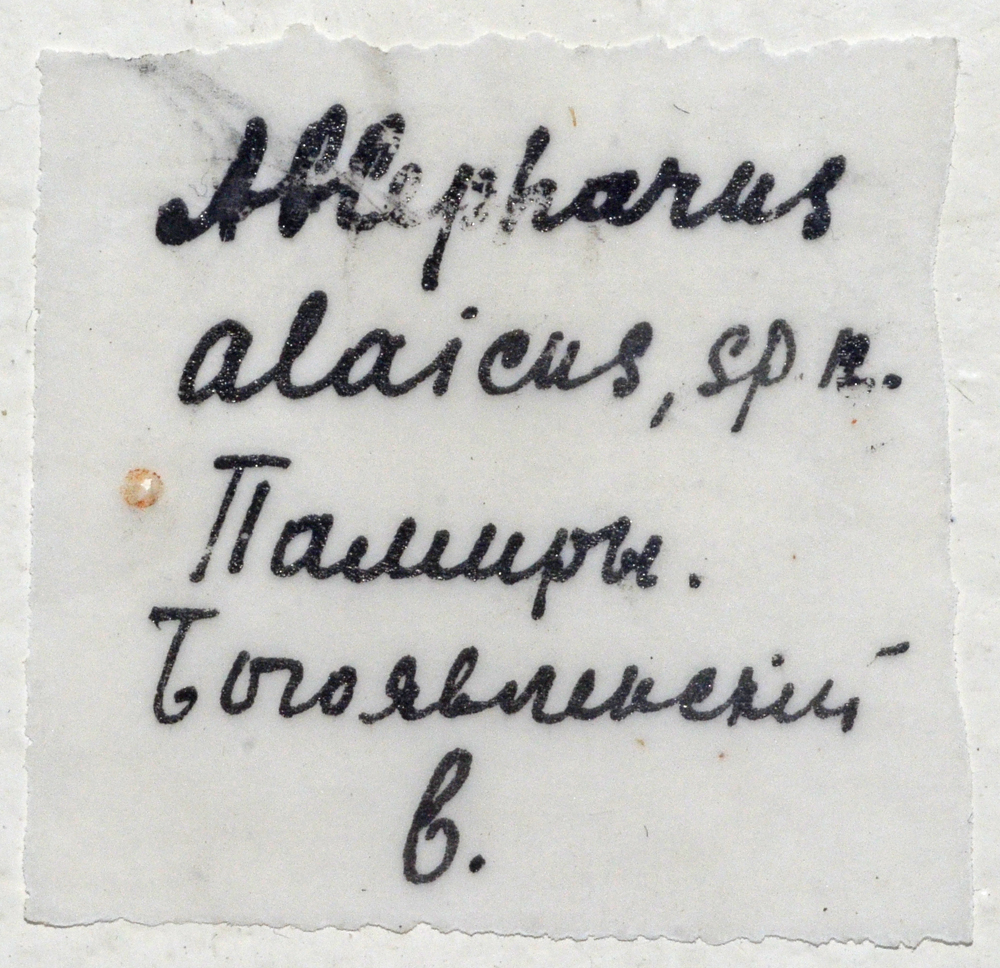 Ablepharus
alaicus, sp. n.
Памиры.
Богоявленскій
в.